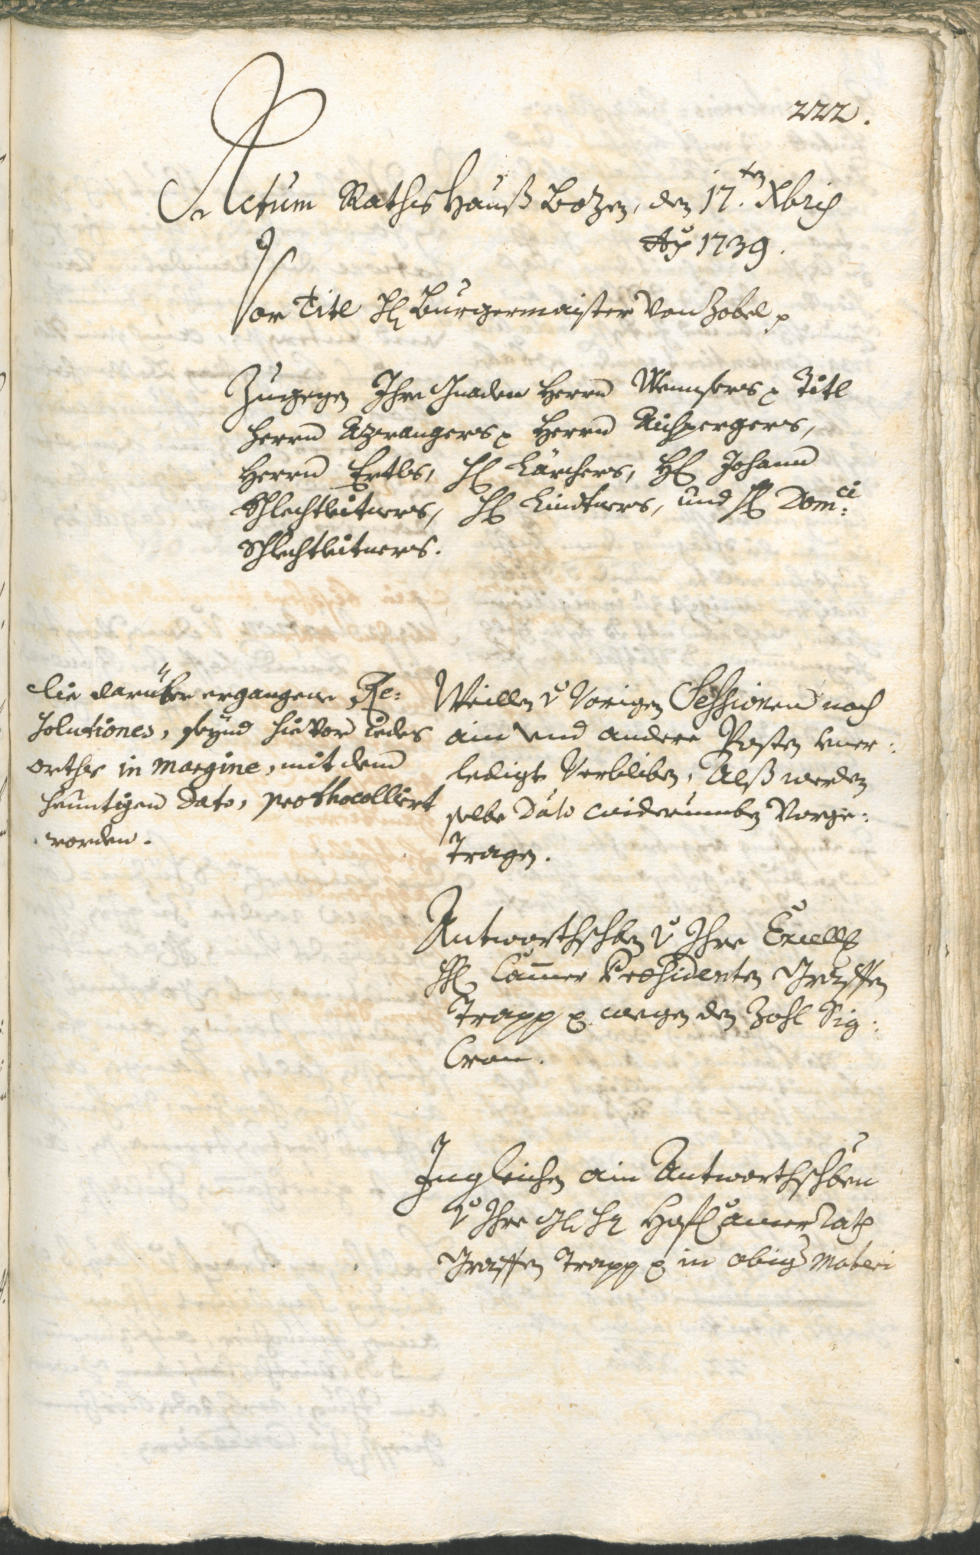 222.
Actum Rathshauß Botzen, den 17.ten Xbris
Ao 1739.
Vor Titl H. Burgermaister von Zobel p
Zugegen Ihro Gnaden Herrn Mumsers p Titl
Herrn Azwangers p Herrn Aufpergers,
Herrn Ertls, H Lärchers, H Johann
Schlechtleitners, H Lindtners, und H Dom:ci
Schlechtleitners.
die darüber ergangene Re:
solutiones, seynd hievor iedes
orths in margine, mit dem
heuntigen dato, prothocolliert
worden.
Weillen v vorigen Sessionen noch
ain und andere Posten uner:
ledigte verbliben, Alß werden
selbe dato widerumben vorge:
tragen.
Antworthschben v Ihro Excell
H Cammer Præsidenten Graffen
Trapp p wegen den Zohl Sig:
Cron.
Ingleichen ain Antworthschben
v Ihro Gl H HofCammerRath
Graffen Trapp p in obiger Materi